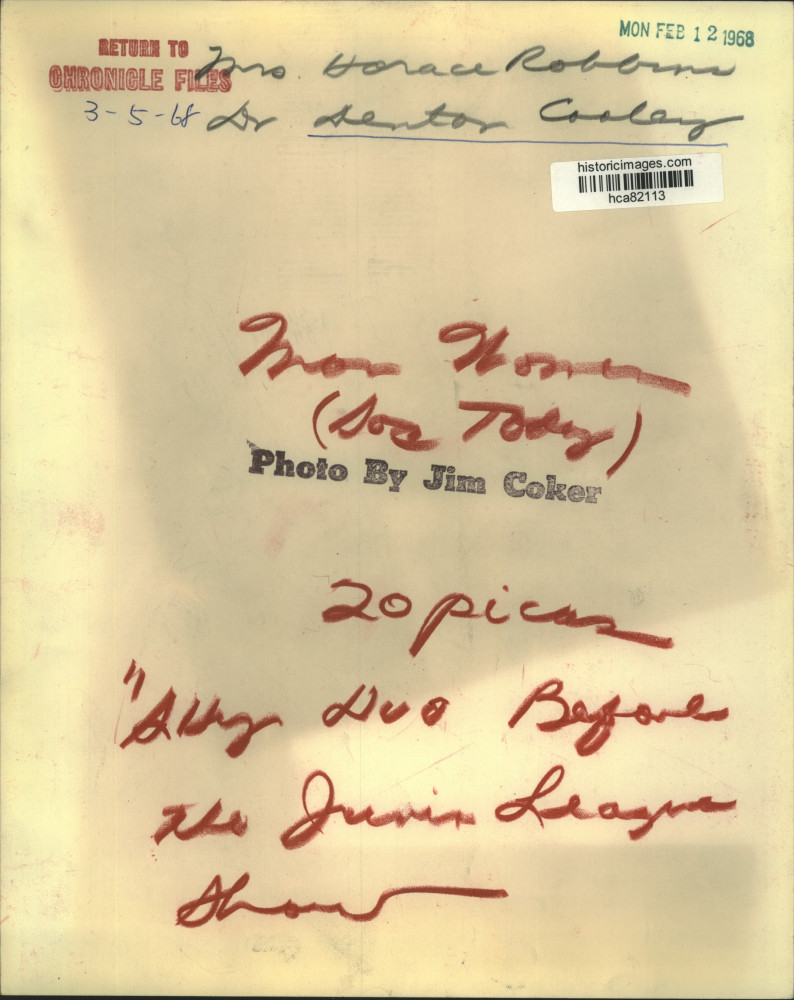 MON FEB 12 1968
RETURN TO
CHRONICLE FILES
Mrs. Horace Robbins
3-5-68 Dr Denton Cooley
historicimages.com
hca82113
Mon Women
(Soc Today)
Photo By Jim Coker
20 picas
Duo Before
the Junior League
Show